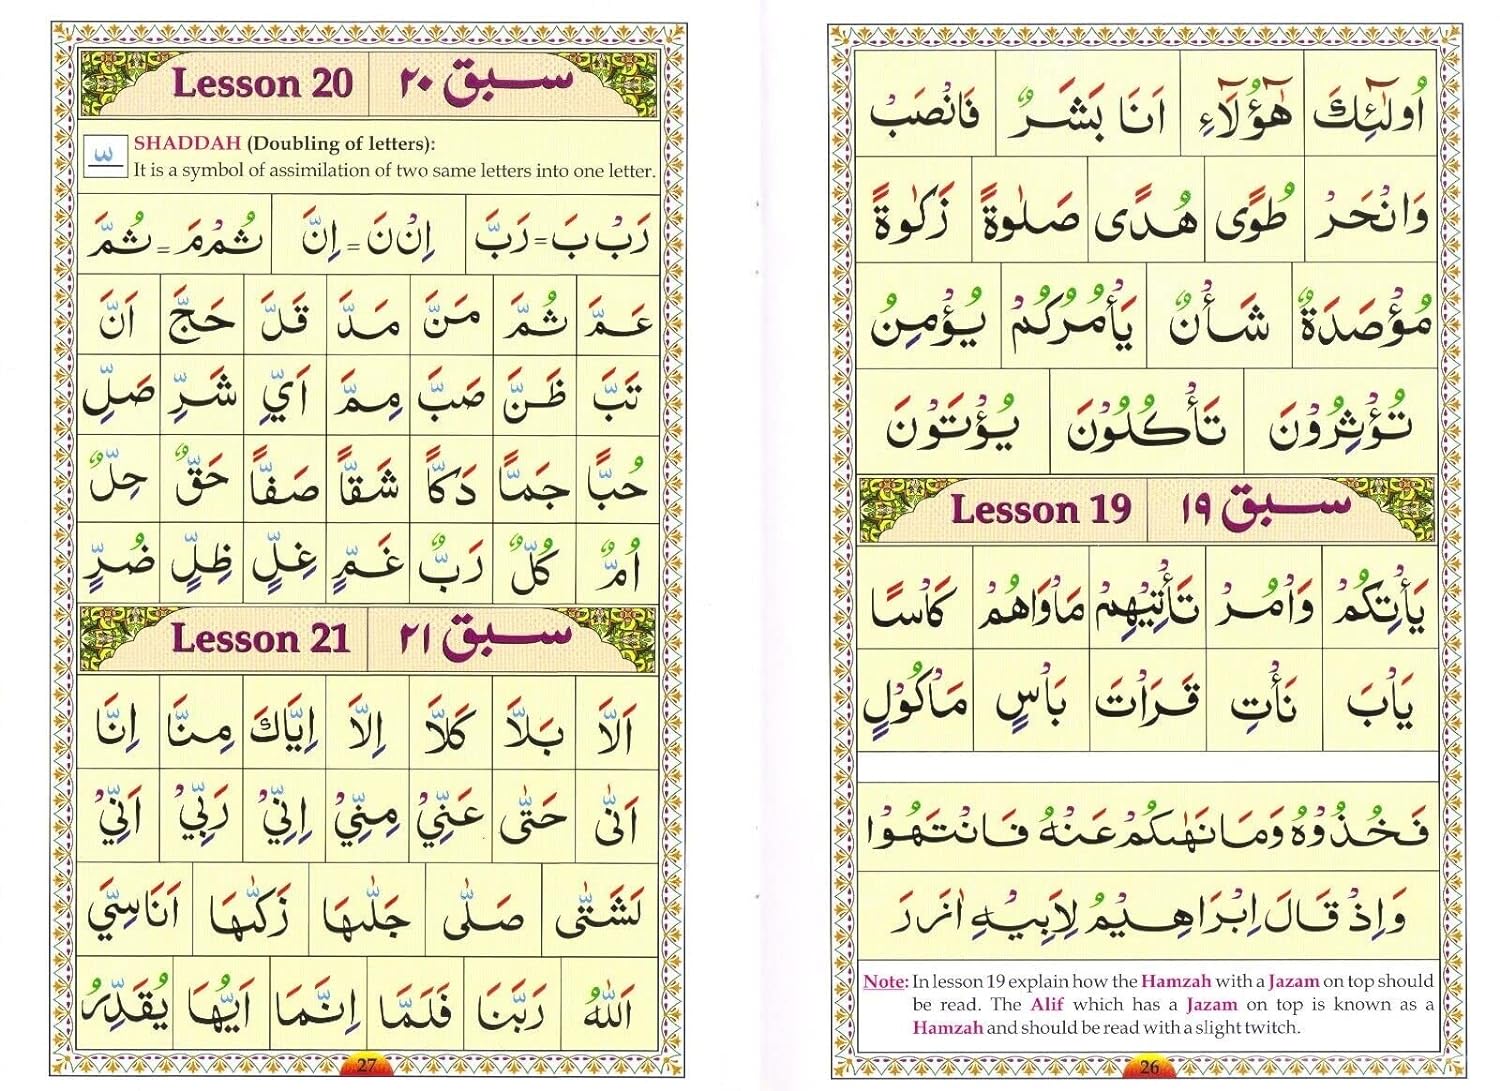 اُولٰٓئِكَ هٰٓؤُلَآءِ اَنَا بَشَرٌ فَانْصَبْ
وَانْحَرْ طُوًى هُدًى صَلٰوةً زَكٰوةً
مُؤْصَدَةٌ شَأْنٌ يَأْمُرُكُمْ يُؤْمِنُ
تُؤْثِرُوْنَ تَأْكُلُوْنَ يُؤْتَوْنَ
Lesson 19 سبق ١٩
يَأْتِكُمْ وَاْمُرْ تَأْتِيْهِمْ مَاْوَاهُمْ كَاْسًا
يَاْبَ نَأْتِ قَرَاْتَ بَاْسٍ مَاْكُوْلٍ
فَخُذُوْهُ وَمَا نَهٰىكُمْ عَنْهُ فَانْتَهُوْا
وَاِذْ قَالَ اِبْرَاهِيْمُ لِاَبِيْهِ اٰزَرَ
Note: In lesson 19 explain how the Hamzah with a Jazam on top should
be read. The Alif which has a Jazam on top is known as a
Hamzah and should be read with a slight twitch.
26
Lesson 20 سبق ٢٠
SHADDAH (Doubling of letters):
It is a symbol of assimilation of two same letters into one letter.
رَبْ بَ = رَبَّ اِنْ نَ = اِنَّ ثُمْ مَ = ثُمَّ
عَمَّ ثُمَّ مَنَّ مَدَّ قَلَّ حَجَّ اَنَّ
تَبَّ ظَنَّ صَبَّ مِمَّ اَيِّ شَرِّ صَلِّ
حُبًّا جَمًّا دَكًّا شَقًّا صَفًّا حَقٌّ حِلٌّ
اُمٌّ كُلٌّ رَبٌّ غَمٍّ غِلٍّ ظِلٍّ ضُرٍّ
Lesson 21 سبق ٢١
اَلَّا بَلَّا كَلَّا اِلَّا اِيَّاكَ مِنَّا اِنَّا
اَنّٰى حَتّٰى عَنِّيْ مِنِّيْ اِنِّيْ رَبِّيْ اَنِّيْ
لَشَتّٰى صَلّٰى جَلّٰىهَا زَكّٰىهَا اَنَاسِيَّ
اَللّٰهُ رَبَّنَا فَلَمَّا اِنَّمَا اَيُّهَا يُقَدِّرُ
27